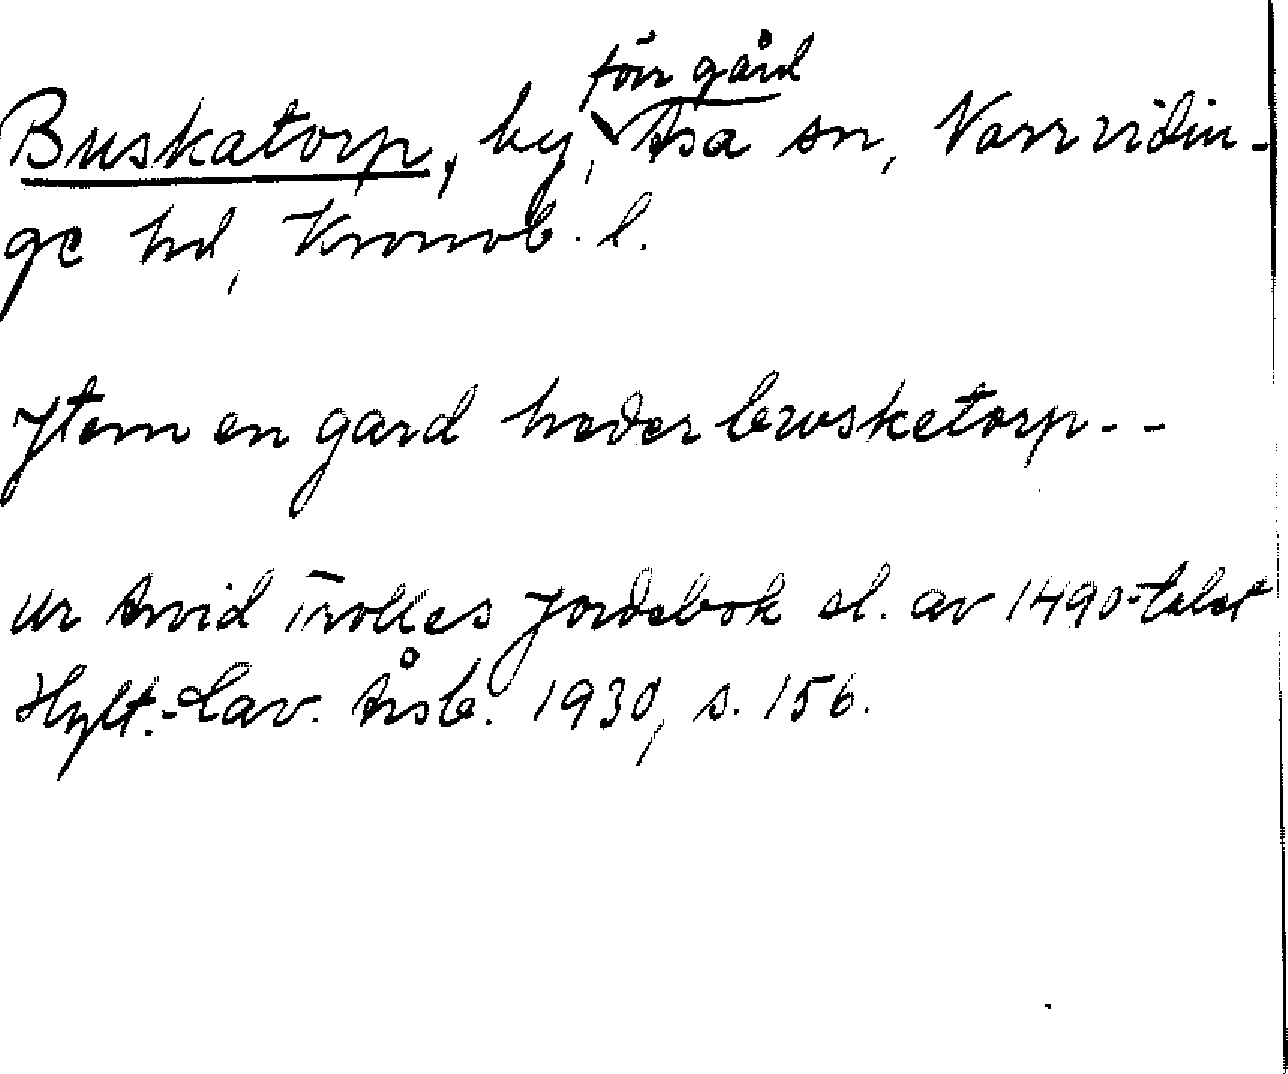 förr gård
Buskatorp, by, Asa sn, Norrvidin-
ge hd, Kronob. l.
Jtem en gard heder bwsketorp--
Ur Arvid Trolles Jordebok sl. av 1490-talet
Hylt.-Cav. Årsb. 1930, s. 156.